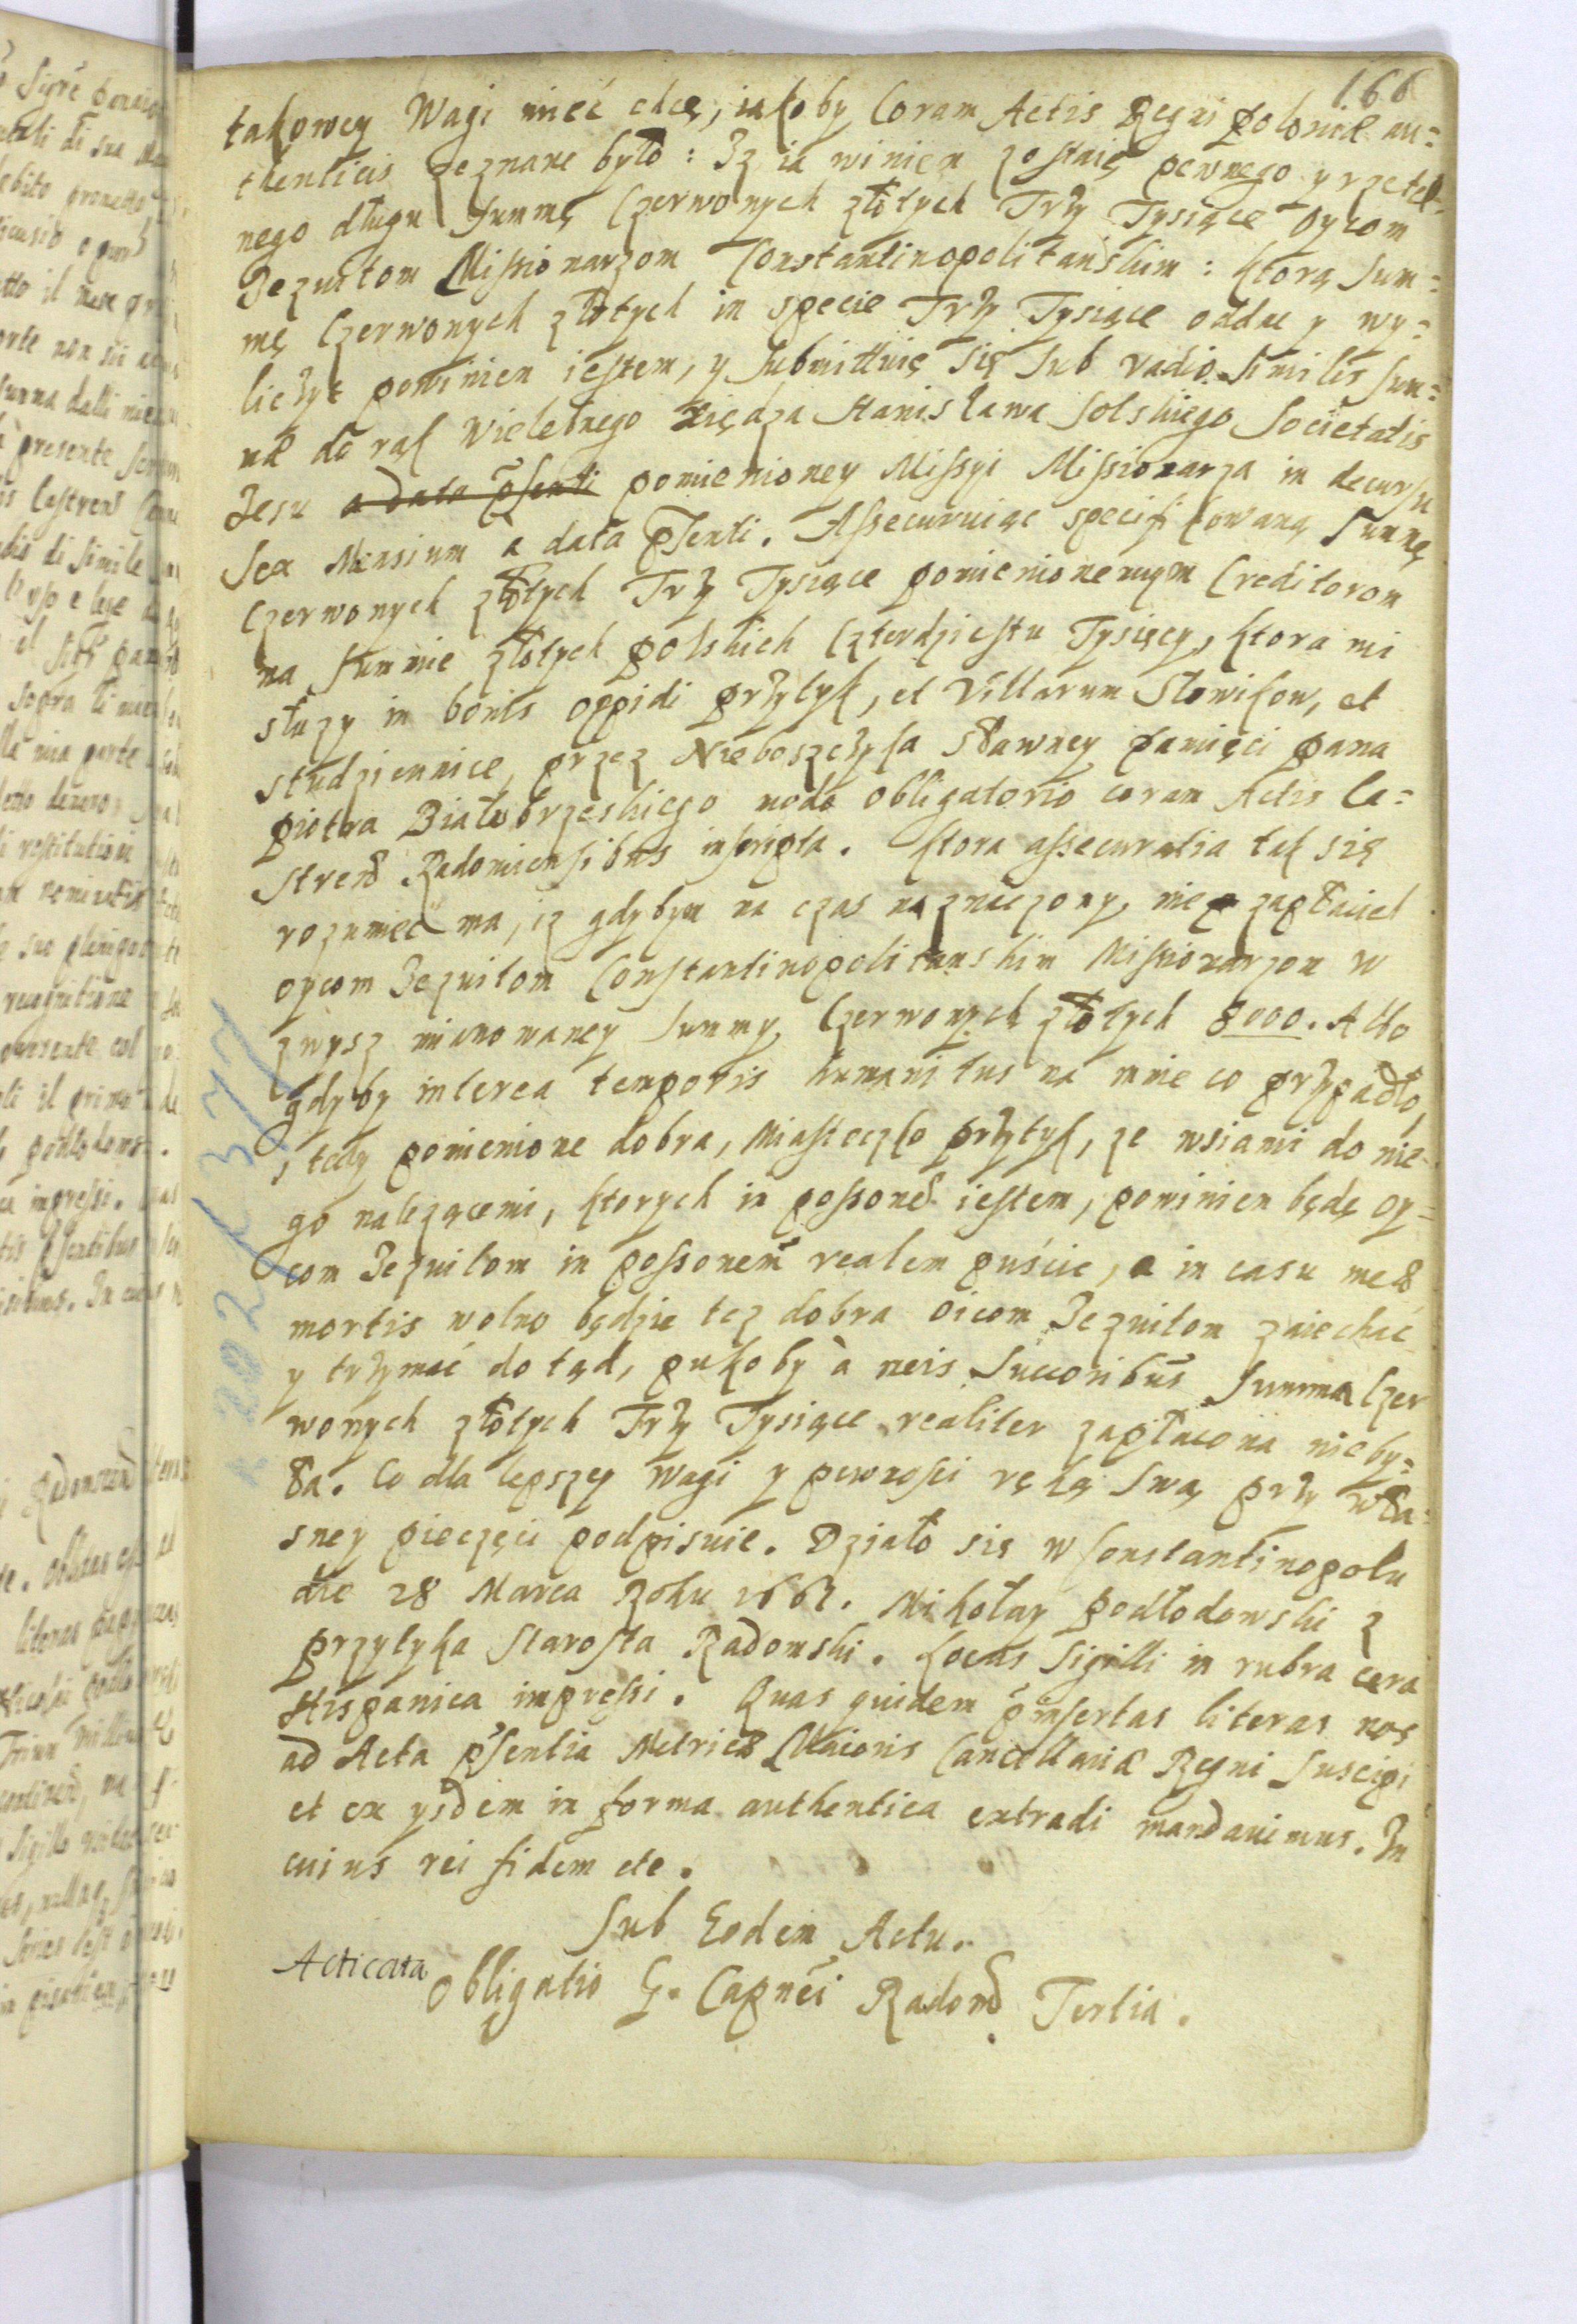 166
takowey Wagi mieć chcę, iakoby Coram Actis Regni Poloniæ au=
thenticis zeznane było: Iz ia winien zostaię pewnego y rzetel=
nego długu Summę Czerwonych złotych Trzy Tysiące Oycom
Iezuitom Missionarzom Constantinopolitańskim: ktorą Sum=
mę Czerwonych złotych in specie Trzy Tysiące oddac y wy=
liczyc powinien iestem, y submittuię się sub vadio similis Sum=
mæ do rąk Wielebnego Xiędza Stanisława Solskiego Societatis
Iesu a data p̃senti pomienioney Missyi Missionarza in decursu
Sex Mensium a data p̃senti. Assecuruiąc specifikowaną Summę
Czerwonych złotych Trzy Tysiące pomienionemym Creditorom
na Summie złotych polskich Czterdziestu Tysięcy, ktora mi
słuzy in bonis oppidi Przytyk, et Villarum Słowikow, et
Studziennice, przez Nieboszczyka sławney pamięci Pana
Piotra Białobrzeskiego modo obligatorio coram Actis Ca=
stren̄ Radomiensibus inscripta. Ktora assecuratia tak się
rozumieć ma, iz gdybym na czas naznaczony, nie zapłacieł
oycom Iezuitom Constantinopolitanskim Missionarzom w
zwysz mianowaney Summy Czerwonych złotych 3000. Albo
gdyby interea temporis humanitus na mnie co przypadło,
tedy pomienione dobra, Miasteczko Przytyk, ze wsiami do nie=
go nalezącemi, ktorych in posson̄e iestem, powinien będę Oy=
com Iezuitom in possonem̄ realem puścic, a in casu meæ
mortis wolno będzie tez dobra Oicom Iezuitom zaiechac
y trzymać do tąd, pukoby à meis Succoribus̄ Summa Czer
wonych złotych Trzy Tysiące realiter zapłacona nieby=
ła. Co dla lepszey wagi y pewnosci ręką Swą przy wła=
sney pieczęci podpisuie. Działo się w Constantinopolu
die 28 Marca Roku 1661. Mikołay Podlodowski z
Przytyka Starosta Radomski. Locus Sigilli in rubra cera
Hispanica impressi. Quas quidem p̄insertas literas nos
ad Acta p̃sentia Metricæ Maioris Cancellariæ Regni Suscipi
et ex ysdem in forma authentica extradi mandauimus. In
cuius rei fidem etc.
Sub Eodem Actu.
Acticata
Obligatio G. Capnēi Radom̄ Tertia.